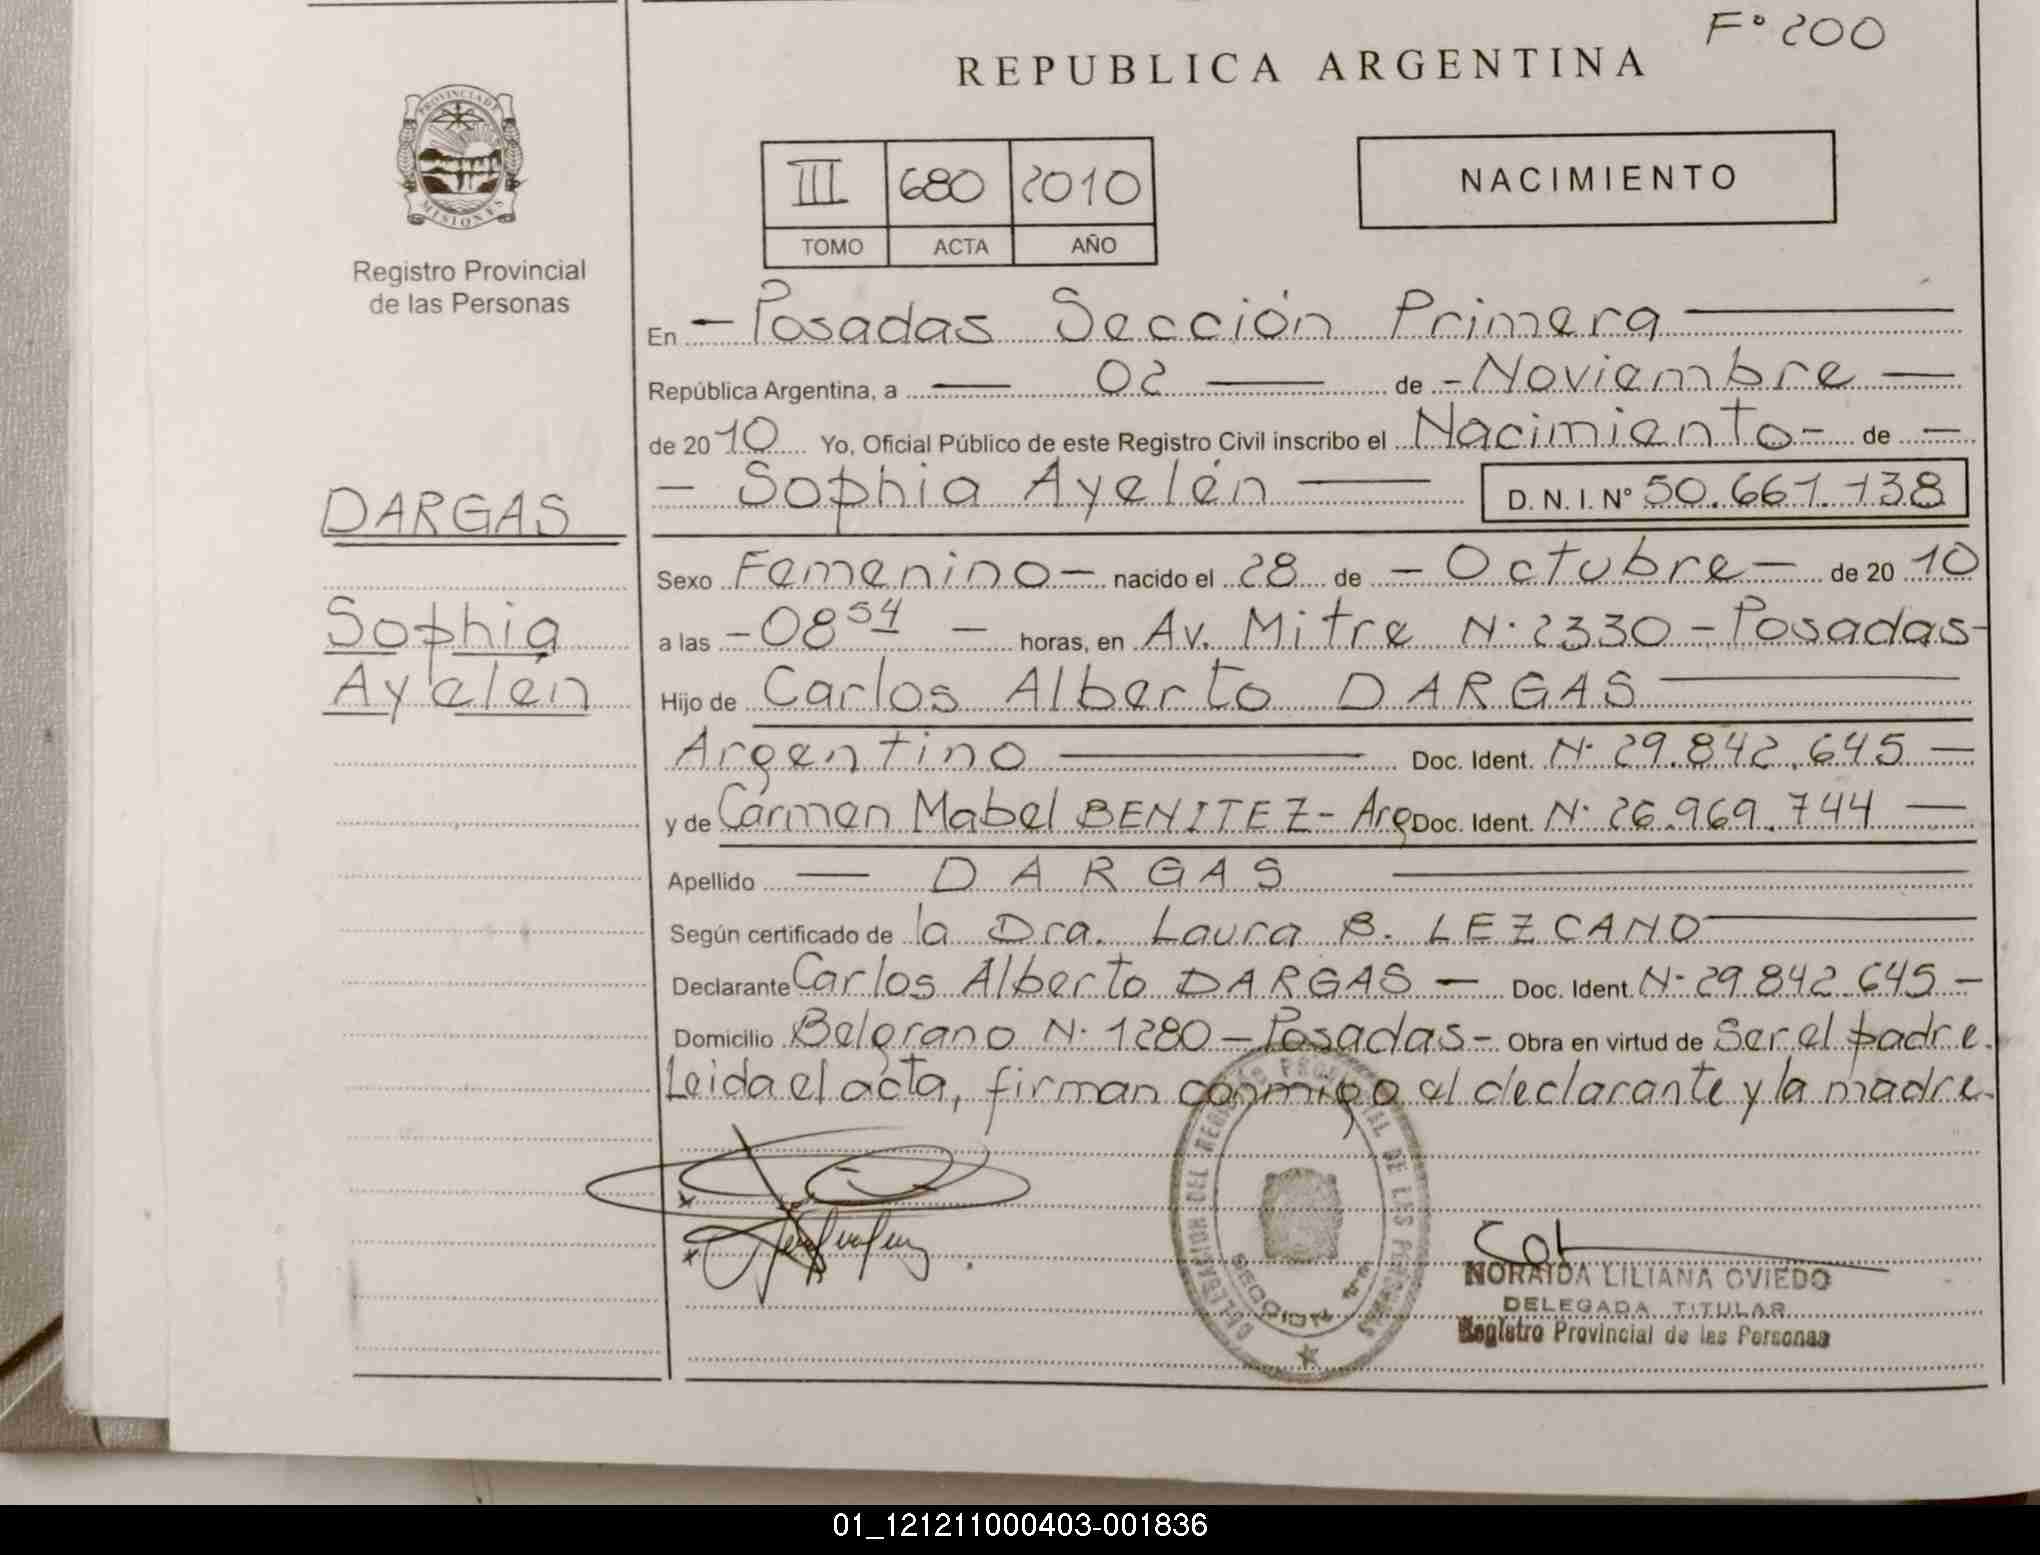 F° 200
REPUBLICA ARGENTINA
PROVINCIA DE
MISIONES
Registro Provincial
de las Personas
III 680 2010
TOMO ACTA AÑO
NACIMIENTO
En - Posadas Sección Primera
República Argentina, a 02 de - Noviembre
de 2010 Yo, Oficial Público de este Registro Civil inscribo el Nacimiento - de -
- Sophia Ayelén D. N. I. N° 50.661.138
DARGAS
Sophia
Ayelén
Sexo Femenino - nacido el 28 de - Octubre - de 2010
a las - 08 54 - horas, en Av. Mitre N· 2330 - Posadas -
Hijo de Carlos Alberto DARGAS
Argentino Doc. Ident. N· 29.842.645 -
y de Carmen Mabel BENITEZ - Arg Doc. Ident. N· 26.969.744
Apellido DARGAS
Según certificado de la Dra. Laura B. LEZCANO
Declarante Carlos Alberto DARGAS - Doc. Ident. N· 29.842.645 -
Domicilio Belgrano N· 1280 - Posadas - Obra en virtud de Ser el padre.
Leida el acta, firman conmigo el declarante y la madre.
DELEGACION DEL REGISTRO PROVINCIAL DE LAS PERSONAS
SECCION 1ra
NORAIDA LILIANA OVIEDO
DELEGADA TITULAR
Registro Provincial de las Personas
01_121211000403-001836